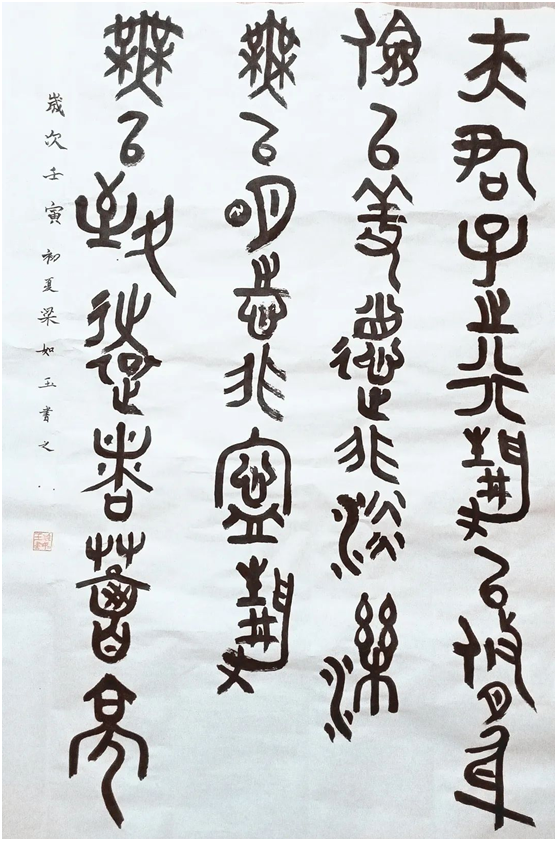 夫君子之行靜以修身
儉以養德非淡泊
無以明志非寧靜
無以致遠諸葛亮
歲次壬寅初夏梁如玉書之